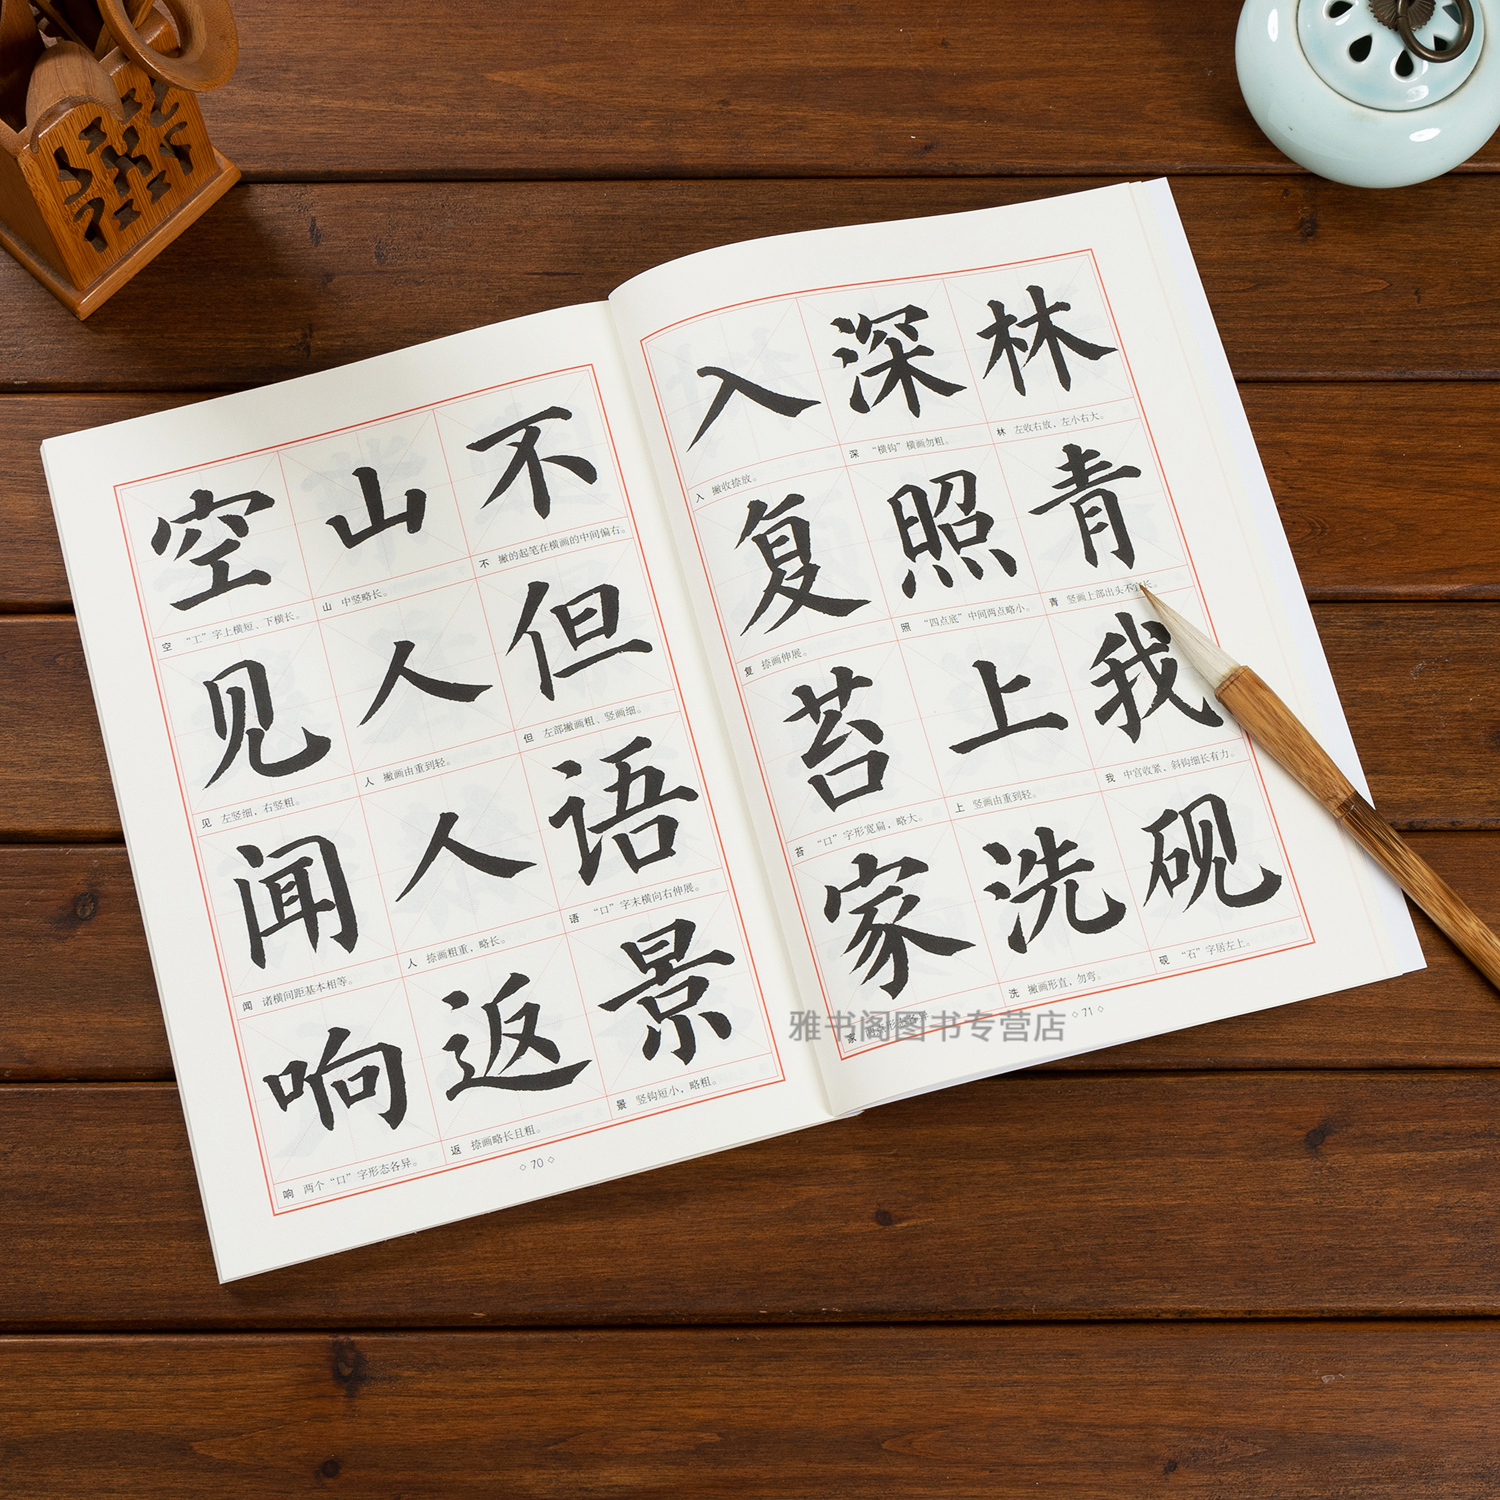 空 山 不
空 “工”字上横短，下横长。
山 中竖略长。
不 撇的起笔在横画的中间偏右。
见 人 但
见 左竖细，右竖粗。
人 撇画由重到轻。
但 左部撇画粗，竖画细。
闻 人 语
闻 诸横间距基本相等。
人 捺画粗重，略长。
语 “口”字末横向右伸展。
响 返 景
响 两个“口”字形态各异。
返 捺画略长且粗。
景 竖钩短小，略粗。
◇ 70 ◇
入 深 林
入 撇收捺放。
深 “横钩”横画勿粗。
林 左收右放，左小右大。
复 照 青
复 捺画伸展。
照 “四点底”中间两点略小。
青 竖画上部出头不宜长。
苔 上 我
苔 “口”字形宽扁，略大。
上 竖画由重到轻。
我 中宫收紧，斜钩细长有力。
家 洗 砚
家
洗 撇画形直，勿弯。
砚 “石”字居左上。
◇ 71 ◇
雅书阁图书专营店